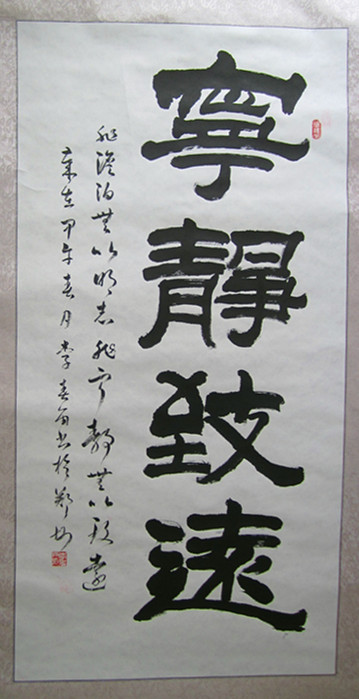 寧靜致遠
非澹泊無以明志非寧靜無以致遠
歲在甲午春月李春甫書於鄭州